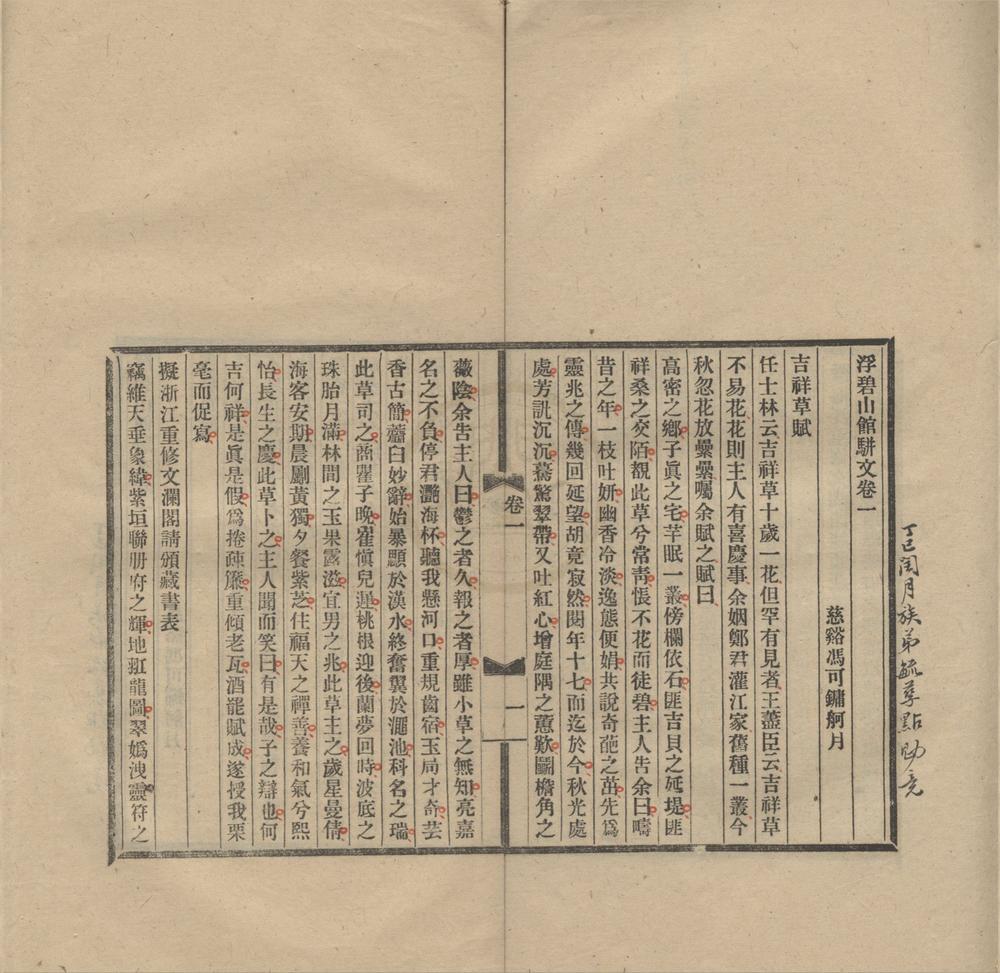 丁巳閏月族弟毓孳點勘一竟
浮碧山館駢文卷一
慈谿馮可鏞舸月
吉祥草賦
任士林云吉祥草十歲一花但罕有見者王藎臣云吉祥草
不易花花則主人有喜慶事余姻鄭君灌江家舊種一叢今
秋忽花放纍纍囑余賦之賦曰
高密之鄉子眞之宅芊眠一叢傍欄依石匪吉貝之延堤匪
祥桑之交陌覩此草兮常靑悵不花而徒碧主人告余曰疇
昔之年一枝吐妍幽香冷淡逸態便娟共說奇葩之茁先爲
靈兆之傳幾回延望胡竟寂然閱年十七而迄於今秋光處
處芳訊沉沉驀驚翠帶又吐紅心增庭隅之蕙歎鬭檐角之
卷一
一
薇陰余告主人曰鬱之者久報之者厚雖小草之無知亮嘉
名之不負停君灩海杯聽我懸河口重規齒宿玉局才奇芸
香古簡虀臼妙辭始暴顋於漢水終奮翼於澠池科名之瑞
此草司之商瞿子晚翟愼兒遲桃根迎後蘭夢回時波底之
珠胎月滿林間之玉果露滋宜男之兆此草主之歲星曼倩
海客安期晨劚黃獨夕餐紫芝住福天之禪善養和氣兮熙
怡長生之慶此草卜之主人聞而笑曰有是哉子之辯也何
吉何祥是眞是假爲捲疎簾重傾老瓦酒罷賦成遂授我栗
毫而促寫
擬浙江重修文瀾閣請頒藏書表
竊維天垂象緯紫垣聯册府之輝地𤣥龍圖翠嬀洩靈符之